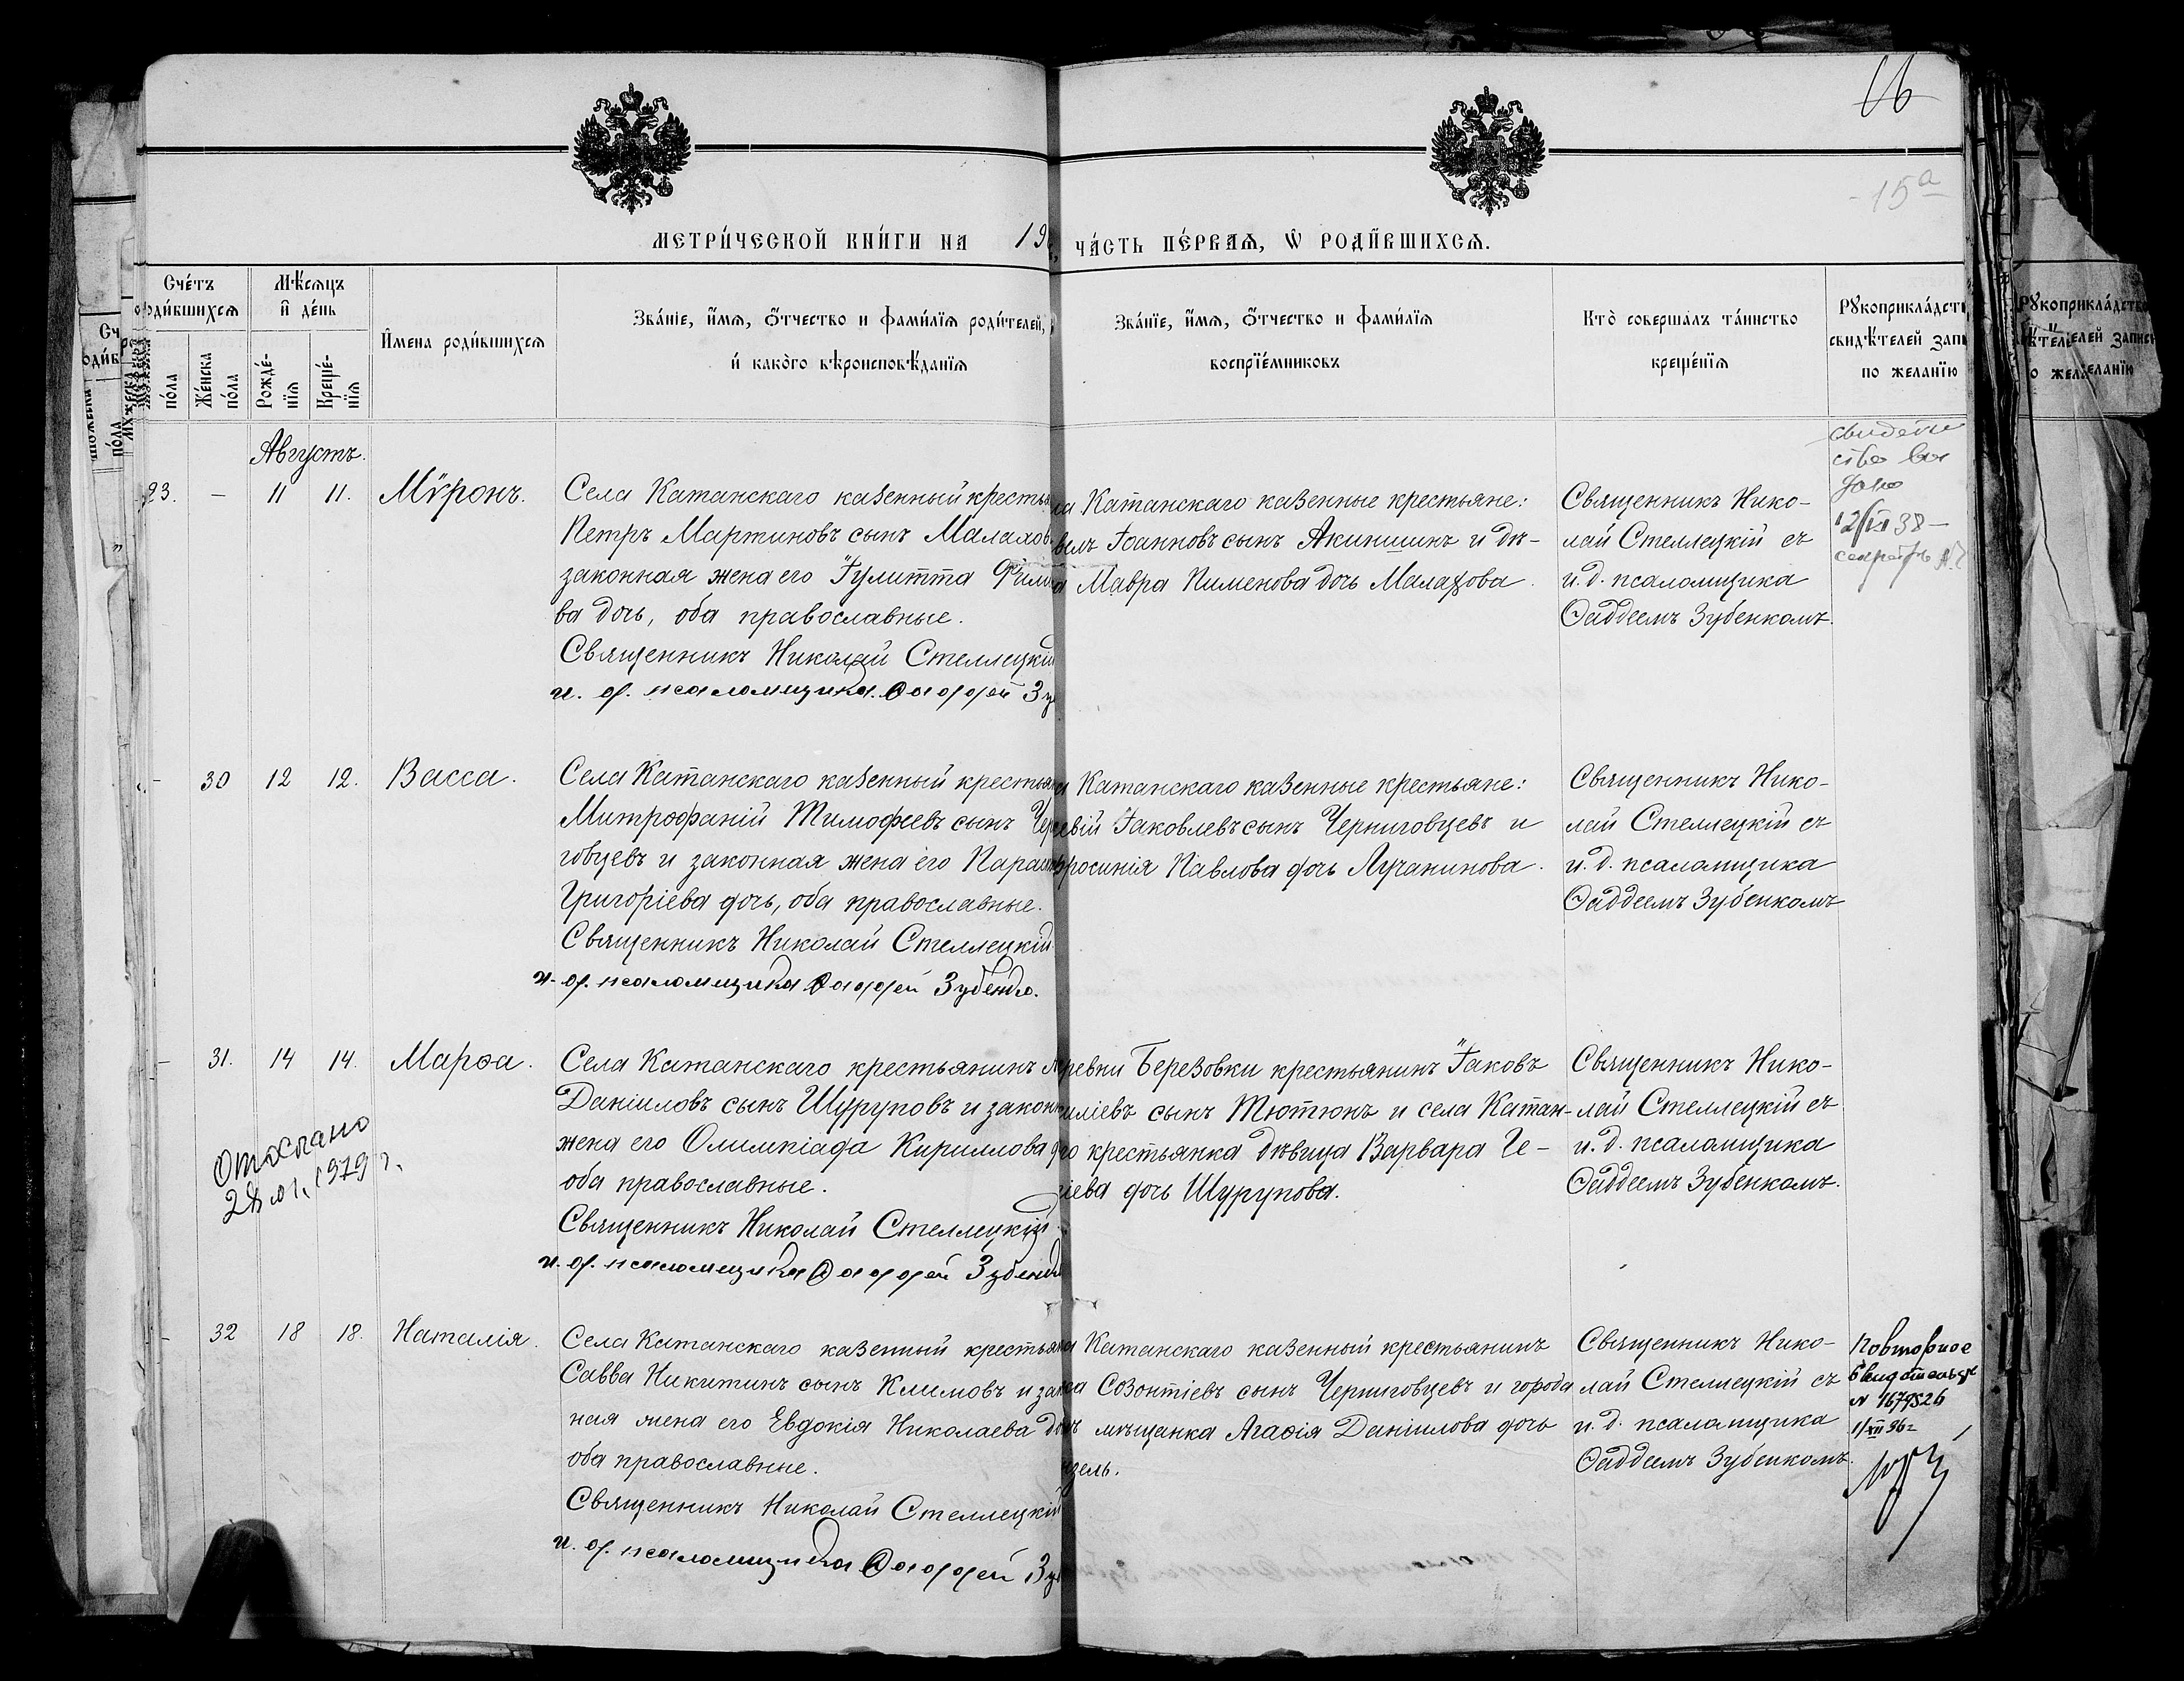 16
15а
МЕТРИ́ЧЕСКОЙ КНИ́ГИ НА 19
ЧА́СТЬ ПЕ́РВАѦ, Ѡ РОДИ́ВШИХСѦ.
Сче́тъ
роди́вшихсѧ
Мѣ́сѧцъ
и҆ де́нь
И҆мена роди́вшихсѧ
Зва́нїе, и҆́мѧ, ѻ҆́тчество и фами́лїѧ роди́телей,
и҆ како́гѡ вѣроисповѣ́данїѧ
Зва́нїе, и҆́мѧ, ѻ҆́тчество и фами́лїѧ
воспрїе́мниковъ
Кто̀ соверша́лъ та́инство
креще́нїѧ
Рꙋкоприкла́дст
свидѣ́телей запи
по желанїю
по́ла
Же́нска
по́ла
Рожде́-
нїѧ
Креще́-
нїѧ
Августъ.
23. – 11 11. Мѵронъ.
Села Катанскаго казенный крестья
Петръ Мартиновъ сынъ Малахов
законная жена его Іулитта Фили
ва дочь, оба православные.
Священникъ Николай Стеллецкій
и. д. псаломщика Ѳаддей Зу
ла Катанскаго казенные крестьяне:
велъ Іоанновъ сынъ Акиншинъ и дѣ-
а Мавра Пименова дочь Малахова.
Священникъ Нико-
лай Стеллецкій съ
и. д. псаломщика
Ѳаддеемъ Зубенкомъ.
свидете
ство вы
дано
38
– 30 12 12. Васса.
Села Катанскаго казенный крестьян
Митрофаній Тимофеевъ сынъ Чер
говцевъ и законная жена его Параск
Григоріева дочь, оба православные.
Священникъ Николай Стеллецкій
и. д. псаломщика Ѳаддей Зубенко.
а Катанскаго казенные крестьяне:
евій Іаковлевъ сынъ Черниговцевъ и
фросинія Павлова дочь Лучанинова.
Священникъ Нико-
лай Стеллецкій съ
и. д. псаломщика
Ѳаддеемъ Зубенкомъ
– 31. 14 14. Марѳа.
Отослано
1979 г.
Села Катанскаго крестьянинъ
Даніиловъ сынъ Шуруповъ и закон
жена его Олимпіада Кириллова д
оба православные.
Священникъ Николай Стеллецкій.
и. д. псаломщика Ѳаддей Зубенк
ревни Березовки крестьянинъ Іаковъ
иліевъ сынъ Тютюнъ и села Катан-
го крестьянка дѣвица Варвара Ге-
гіева дочь Шурупова.
Священникъ Нико-
лай Стеллецкій съ
и. д. псаломщика
Ѳаддеемъ Зубенкомъ.
– 32 18 18. Наталія.
Села Катанскаго казенный крестьян
Савва Никитинъ сынъ Климовъ и зак
ная жена его Евдокія Николаева до
оба православные.
Священникъ Николай Стеллецкій
и. д. псаломщика Ѳаддей Зу
а Катанскаго казенный крестьянинъ
Созонтіевъ сынъ Черниговцевъ и города
мѣщанка Агаѳія Даніилова дочь
зель.
Священникъ Нико-
лай Стеллецкій съ
и. д. псаломщика
Ѳаддеемъ Зубенкомъ.
Повторное
№ 1679526
1/XII 36 г